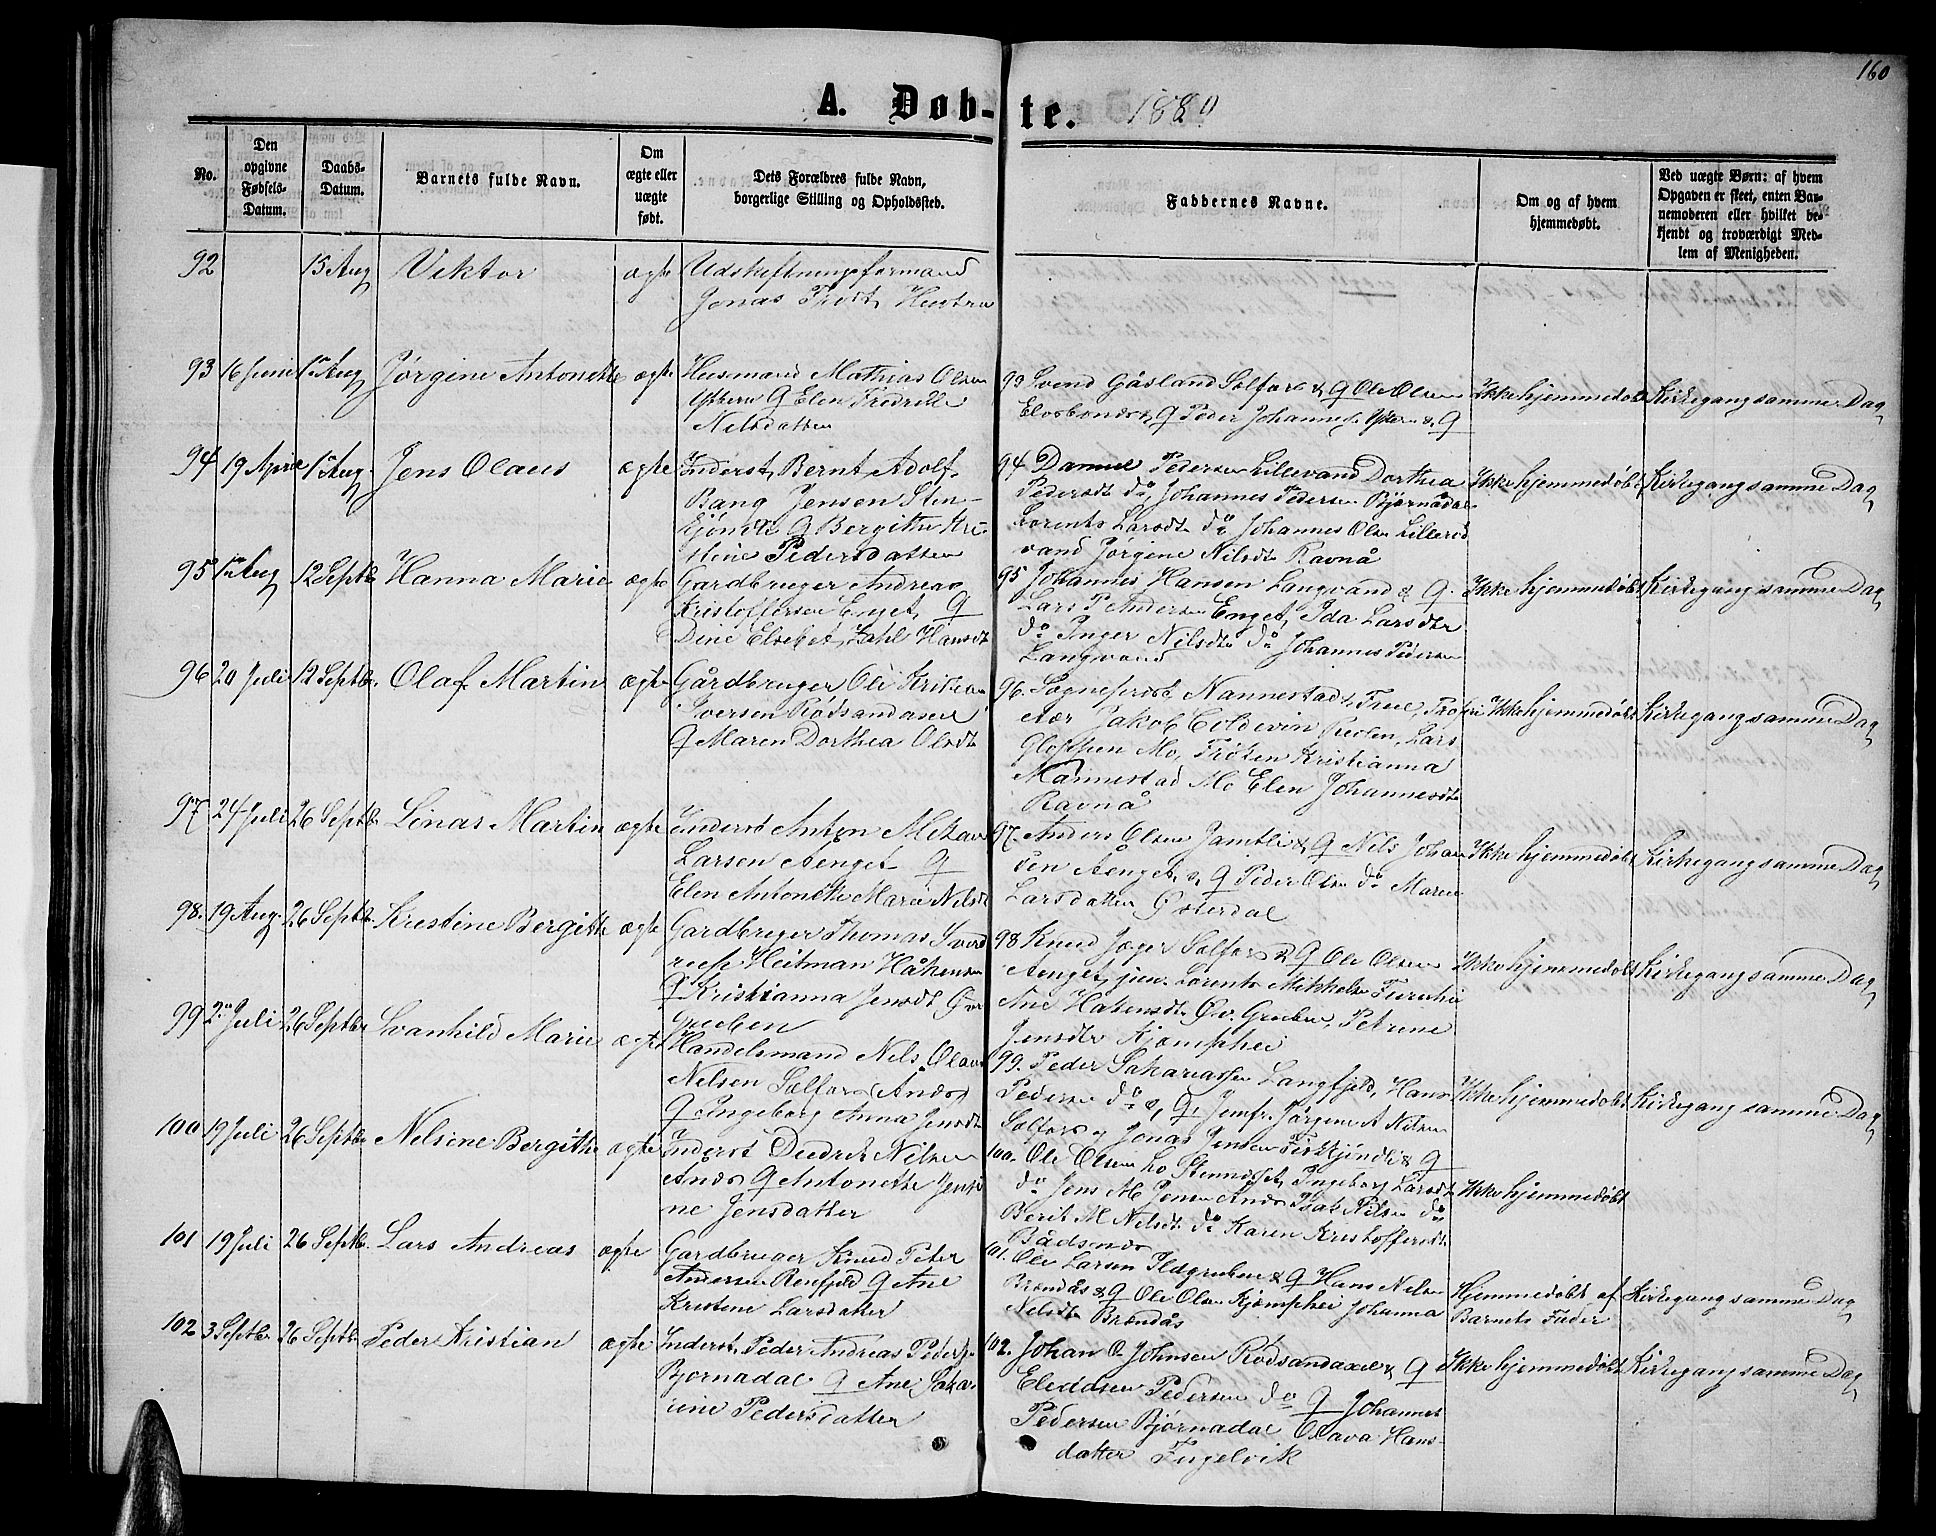 160
A. Døb-te. 1880
No.
Den opgivne Fødsels-Datum.
Daabs-Datum.
Barnets fulde Navn.
Om ægte eller uægte født.
Dets Forældres fulde Navn, borgerlige Stilling og Opholdssted.
Faddernes Navne.
Om og af hvem hjemmedøbt.
Ved uægte Børn: af hvem Opgaven er skeet, enten Barnemoderen eller hvilket bekjendt og troværdigt Medlem af Menigheden.
92 15 Aug Viktor ægte Udskiftningsformand
Jonas Hustru
93 16 Juni 15 Aug Jørgine Antonette ægte Husmand Mathias Olsen
Ytteren & Elen Fredrikke
Nilsdatter
93 Svend Gåsland Selfors & & Ole Olsen
& Peder Johannes. Ytteren & &
Ikke hjemmedøbt Kirkegang samme Dag
94 19 April 15 Aug. Jens Olaus ægte Inderst Bernt Adolf
Bang Jensen Sten-
& Bergitte Kri-
stine Pedersdatter
94 Daniel Pedersen Lillevand Dorthea
Pedersdt do, Johannes Pedersen Bjørnådal
Lorents Larsdt do Johannes Olsen Lillerød
vand Jørgine Nilsdt Ravnå
Ikke hjemmedøbt Kirkegang samme Dag
95 1 Aug 12 Septbr Hanna Marie ægte Gardbruger Andreas
Kristoffersen Enget, &
Dine Elsebet Zahl Hansdt
95 Johannes Hansen Langvand & &
Lars P Andersen Enget, Ida Larsdtr
do Inger Nilsdt do Johannes Pedersen
Langvand
Ikke hjemmedøbt Kirkegang samme Dag
96 20 Juli 12 Septbr. Olaf Martin ægte Gårdbruger Ole Kristian
Iversen Rødsandasen
& Maren Dorthea Olsdt
96. Sogneprest Nannestad, Frue, Propri
etær Jakob Coldevin Lars
Mo, Frøken Kristianna
Nannestad Mo Elen Johannesdt
Ravnå
Ikke hjemmedøbt Kirkegang samme Dag
97 24 Juli 26 Septbr Linas Martin ægte Inderst Anton Mikal
Larsen Aenget &
Elen Antonette Marie Nilsdt
97. Anders Olsen Jamtli & & Nils Johan
sen Aenget & & Peder Olsen do Maren
Larsdatter Østerdal
Ikke hjemmedøbt Kirkegang samme Dag
98. 19 Aug. 26 Septbr. Kristine Bergitte ægte Gardbruger Thomas
Heitman Håkensen
& Kristianna Jensdt Øv
Gruben
98 Knud Jæger Selfors & & Ole Olsen
Aenget, Lorents Mikkels
Ane Hakensdt Øv. Gruben, Petrine
Jensdtr Kjæmphei
Ikke hjemmedøbt Kirkegang samme Dag
99 2 Juli 26 Septbr Svanhild Marie ægte Handelsmand Nils Olau
Nilsen Selfors
& Ingeborg Anna Jensdt
99. Peder Sakariassen Langfjeld, Hans
Pedersen do & &, Jomfr. Jørgine A Nilsen
Selfors, Jonas Jensen & &
Ikke hjemmedøbt Kirkegang samme Dag
100 19 Juli 26 Septbr Nelsine Bergitte ægte Inderst Diedrik Nilsen
& Antonette Jensi
ne Jensdatter
100. Ole Olsen Ingeborg Larsdt
do Jens M Jensen Isak Nilsen do
Berit M Nilsdt do Karen Kristoffersdt
Bådsen
Ikke hjemmedøbt
101 19 Juli 26 Septb. Lars Andreas ægte Gardbruger Knud Peter
Andersen Renfjeld & Ane
Kristine Larsdatter
101. Ole Larsen Ildgruben & & Hans Nilsen
Brændås & & Ole Olsen Kjæmphei Johanna
Nilsdt Brændås
Hjemmedøbt af Barnets Fader
Kirkegang samme Dag
102 3 Septbr. 26 Septbr Peder Kristian ægte Inderst Peder Andreas Peders
Bjørnadal & Ane
Pedersdatter
102. Johan O Johnsen Rødsandaasen & &
Pedersen do & Johannes
Pedersen Bjørnadal Olava Hans-
datter
Ikke hjemmedøbt Kirkegang samme Dag